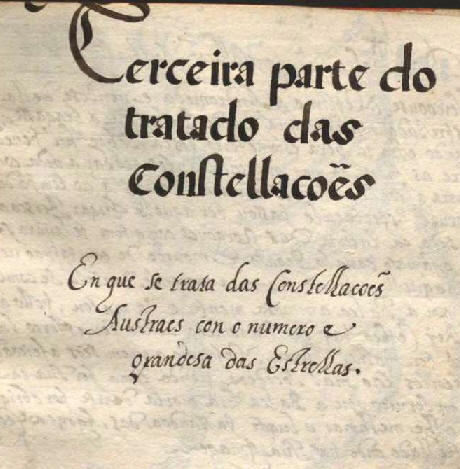 Terceira parte do
tratado das
Constellacoẽs
En que se trata das Constellacoẽs
Austraes con o numero e
grandesa das Estrellas.